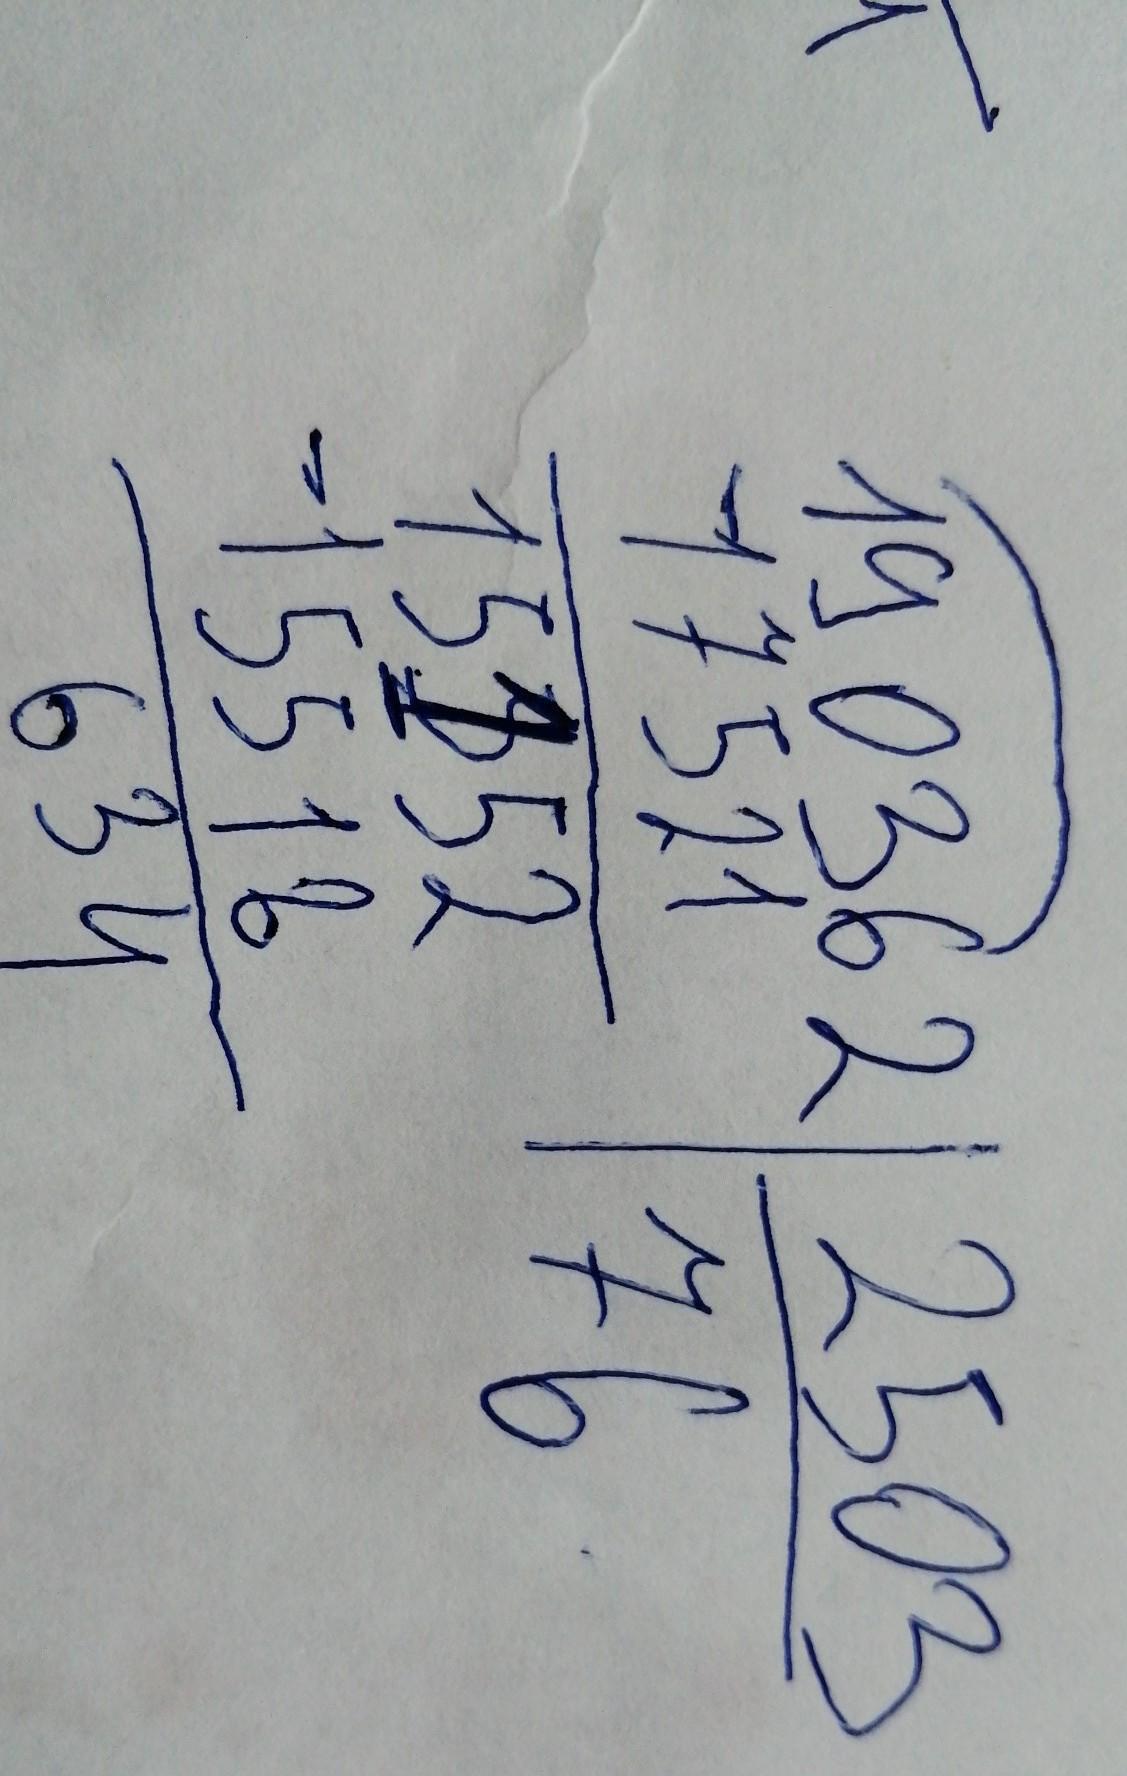 190362 2503
-17521 76
15152
-15518
634